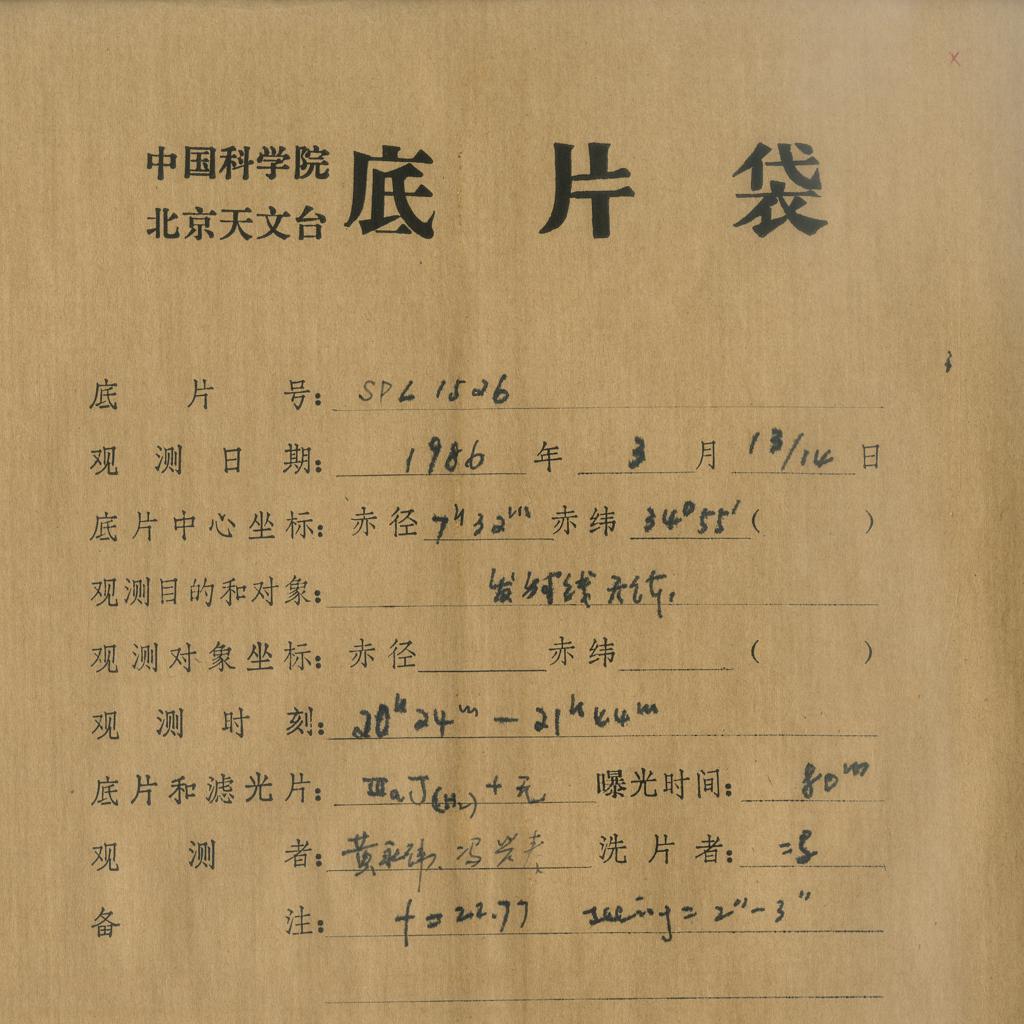 中国科学院
北京天文台
底片袋
底片号: SPL 1526
观测日期: 1986 年 3 月 13/14 日
底片中心坐标: 赤径 7h32m 赤纬 34°55′ ( )
观测目的和对象: 发射线天体.
观测对象坐标: 赤径 赤纬 ( )
观测时刻: 20h24m — 21h44m
底片和滤光片: IIIaJ(H2) + 无 曝光时间: 80m
观测者: 黄永伟、冯兴春 洗片者:
备注: f = 22.77 seeing = 2″-3″